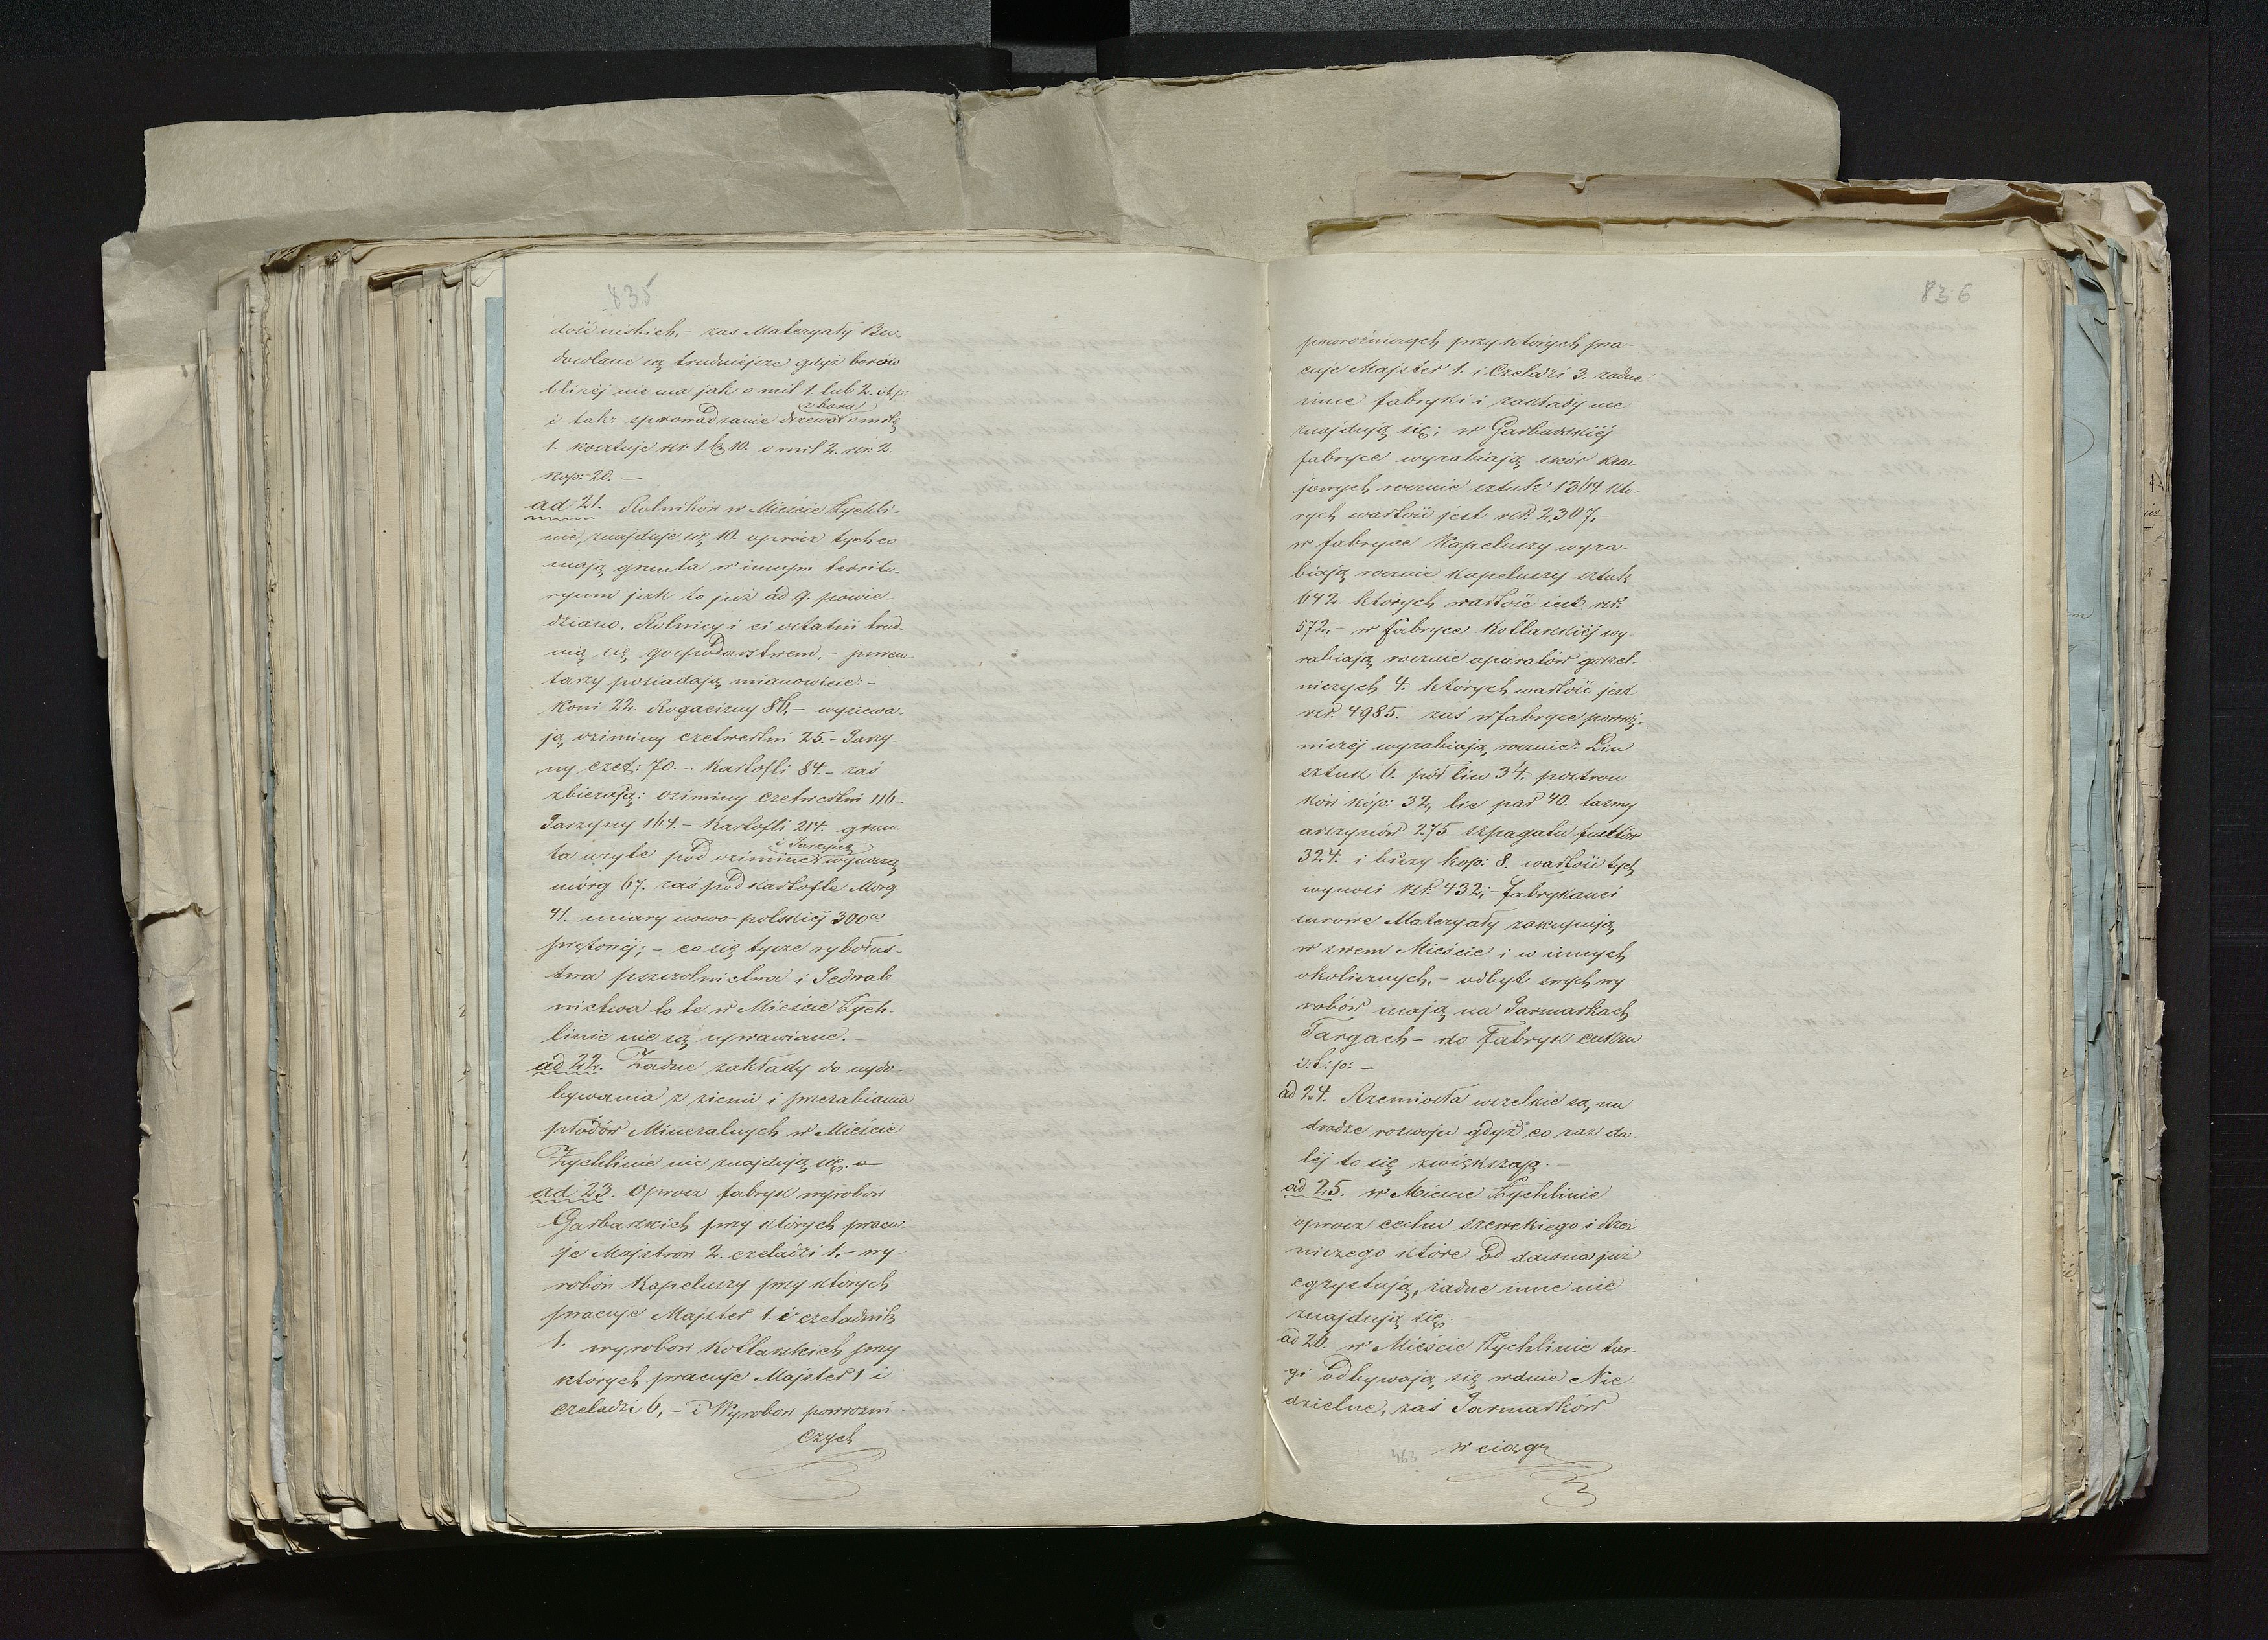 835
dowiniskich, – zas Materyały Bu-
dowlane są trudniejsze gdyż borów
bliżej nie ma jak o mil 1. lub 2. itp:
i tak: sprowadzanie drzewa z boru o milę
1. kosztuje rs. 1. k. 10. o mil 2. rsr. 2.
kop: 20. –
ad 21. Rolników w Mieście Żychli-
nie, znajduje się 10. oprócz tych co
mają grunta w innym territo-
ryum jak to już ad 9. powie-
dziano, Rolnicy i ci ostatni trud-
nią się gospodarstwem, – inwen-
tarzy posiadają mianowicie: –
Koni 22. Rogacizny 86, – wysiewa-
ją oziminy czetwertni 25. – Jarzy-
ny czet: 70. – Kartofli 84. – zaś
zbierają: oziminy czetwertni 116 –
Jarzyny 164. – Kartofli 214. grun-
ta użyte pod oziminę i Jarzynę wynoszą
mórg 67. zaś pod kartofle Morg
41. miary nowo-polskiej 300a
prętowéj; – co się tycze rybołus-
twa pszczolnictwa i Jedwab-
nictwa to te w Mieście Żych-
linie nie są uprawiane. –
ad 22. Żadne zakłady do wydo-
bywania z ziemi i przerabiania
płodów Mineralnych w Mieście
Żychlinie nie znajdują się. –
ad 23. Oprocz fabryk wyrobów
Garbarskich przy których pracu-
je Majstrów 2. czeladzi 1, – wy-
robów Kapeluszy przy których
pracuje Majster 1. i czeladnik
1. wyrobow Kotlarskich przy
których pracuje Majster 1 i
czeladzi 6, – i Wyrobow powrozni-
czych
836
powroźniczych przy których pra-
cuje Majster 1. i Czeladzi 3. żadne
inne fabryki i zakłady nie
znajdują się; w Garbarskiéj
fabryce wyrabiają skór kra-
jowych rocznie sztuk 1364. któ-
rych wartość jest rsr. 2,307, –
w fabryce Kapeluszy wyra-
biają rocznie kapeluszy sztuk
642. których wartość jest rsr.
572, – w Fabryce Kotlarskiéj wy-
rabiają rocznie aparatów gorzel-
niczych 4. których wartość jest
rsr. 4985. zaś w fabryce powroź-
niczéj wyrabiają rocznie: Lin
sztuk 6. pół lin 34. postron
ków kóp: 32, lic par 40. tasmy
arszynów 275. szpagatu funtów
324. i biczy kop: 8. wartość tych
wynosi rsr. 432; – Fabrykanci
surowe Materyały zakupują
w swem Mieście i w innych
okolicznych, – odbyt swych wy-
robów mają na Jarmarkach
Targach – do Fabryk cukru
i: t: p: –
ad 24. Rzemiosła wszelkie są na
drodze rozwoju gdyż co raz da-
léj to się zwiększają. –
ad 25. w Mieście Żychlinie
oprocz cechu szewckiego i Rzeź-
niczego które od dawna już
egzystują, żadne inne nie
znajdują się. –
ad 26. w Mieście Żychlinie tar-
gi odbywają się w dnie Nie-
dzielne, zaś Jarmarków
w ciągu
463